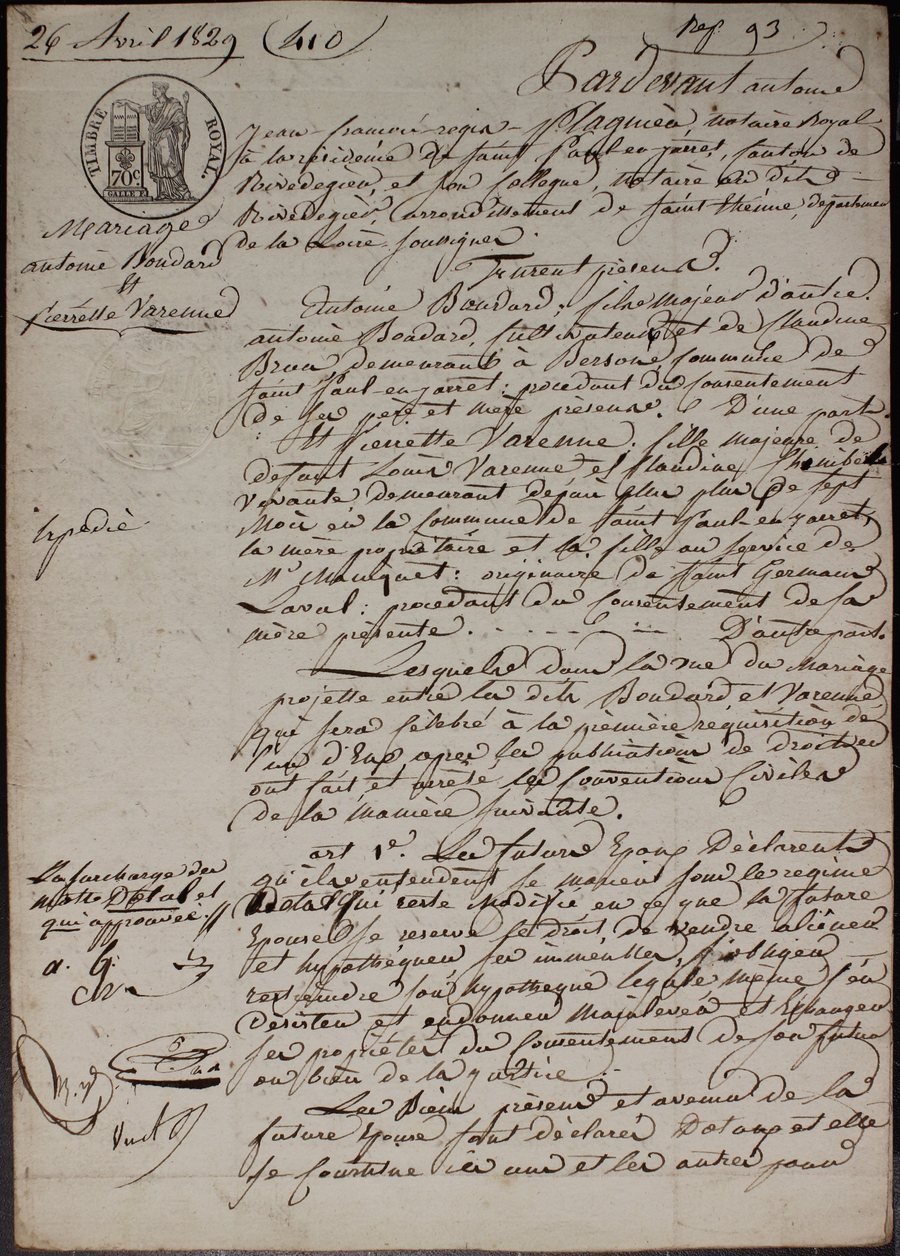 26 Avril 1829 (410)
Rep. 93
TIMBRE ROYAL.
70c
Mariage
antoine Boudard
Et
Pierrette Varenne
Pardevant antoine
Jean-francois-regis- Plagnieu, notaire Royal
à la résidence de saint Paul-en-jarret, canton de
Rivedegier, et son Collegue, notaire au dit
Rivedegier arrondissement de saint-étienne, departement
de la Loire soussignés
Furent présens.
Antoine Boudard, fils majeur d'autre
antoine Boudard, cultivateur et de Claudine
Brun, demeurants à Bersone, commune de
saint Paul-en-jarret : procédant du Consentement
de ses père et mère présens. D'une part.
Et Pierrette Varenne. fille majeure de
defunt Louis Varenne et Claudine
vivante, demeurant depuis plus plus de sept
mois en la Commune de saint Paul-en-jarret,
la mère propriétaire et la fille au service de
Mr : originaire de saint Germain
Laval : procédant du Consentement de sa
mère présente. D'autre part.
Expédié
Lesquels dans la vue du Mariage
projetté entre les dits Boudard et Varenne,
qui sera célébré à la première réquisition de
l'un d'Eux, apres les publications de droit en
ont fait et arrêté les Conventions Civiles
de la manière suivante.
art 1er. Les futurs Epoux Déclarent
qu'ils entendent se marier sous le regime
Dotal qui reste modifié en ce que la future
Epouse se reserve le droit de vendre aliéner
et hypothéquer ses immeubles, s'obliger
restreindre son hypothèque legale même s'en
Désister et en donner mainlevée et Echanger
ses propriétés du Consentement de son futur
ou bien de la justice.
La surcharge du
motto Dotal et
qui approuvée.
a. B.
Les Biens présens et avenir de la
future Epouse sont déclarés Dotaux et elle
se Constitue les uns et les autres pour